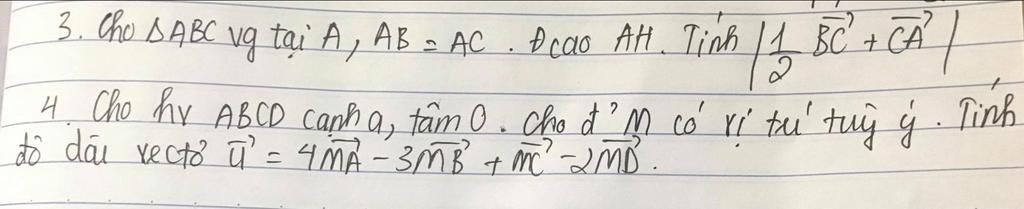 3. Cho ΔABC vg tại A, AB = AC. Đcao AH. Tính |1/2 \overrightarrow{BC} + \overrightarrow{CA}|
4. Cho hv ABCD cạnh a, tâm O. Cho đ' M có vị trí tuỳ ý. Tính
độ dài vectơ \overrightarrow{u} = 4\overrightarrow{MA} - 3\overrightarrow{MB} + \overrightarrow{MC} - 2\overrightarrow{MD}.